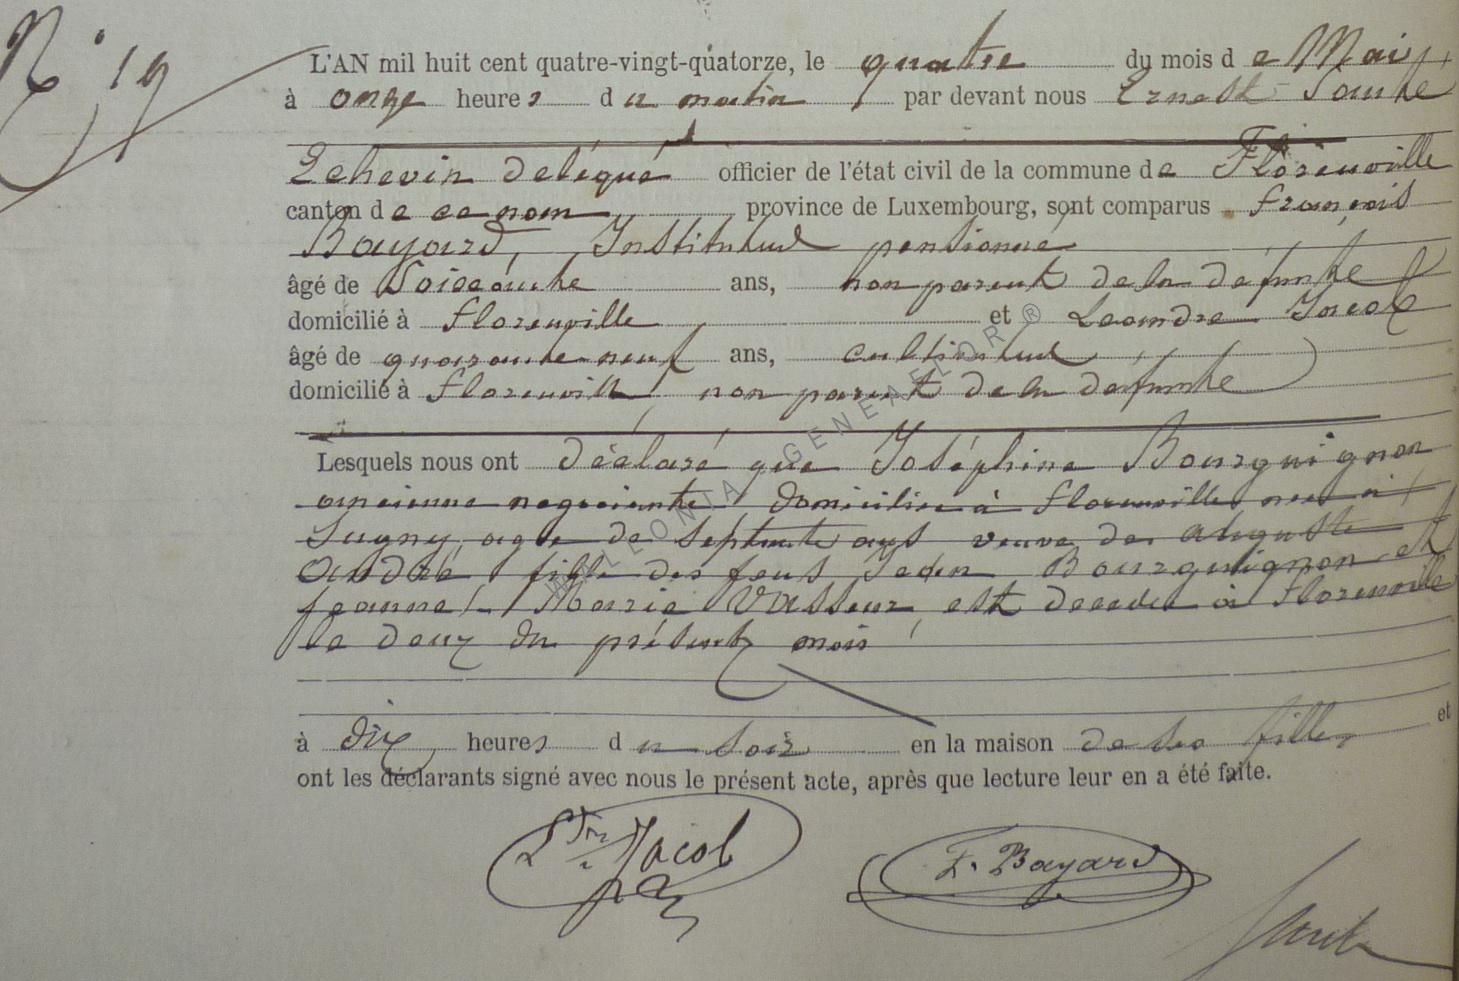 N° 19
L'AN mil huit cent quatre-vingt-quatorze, le quatre du mois de Mai
à onze heures du matin par devant nous Ernest
Echevin délégué officier de l'état civil de la commune de Florenville
canton de ce nom province de Luxembourg, sont comparus françois
Bayard, Instituteur pensionné
âgé de Soixante ans, non parent de la défunte
domicilié à florenville et Leandre Jacob
âgé de quarante-neuf ans, cultivateur
domicilié à florenville, non parent de la défunte
Lesquels nous ont déclaré que Joséphine Bourguignon
ancienne negociante domiciliée à florenville née à
Sugny, agée de septante ans veuve de auguste
André fille des feus Jean Bourguignon et
jeanne-Marie Vasseur est decedée à florenville
le deux du présent mois
à dix heures du soir en la maison de sa fille, et
ont les déclarants signé avec nous le présent acte, après que lecture leur en a été faite.
Jacob
F. Bayard
GENEALOR ®